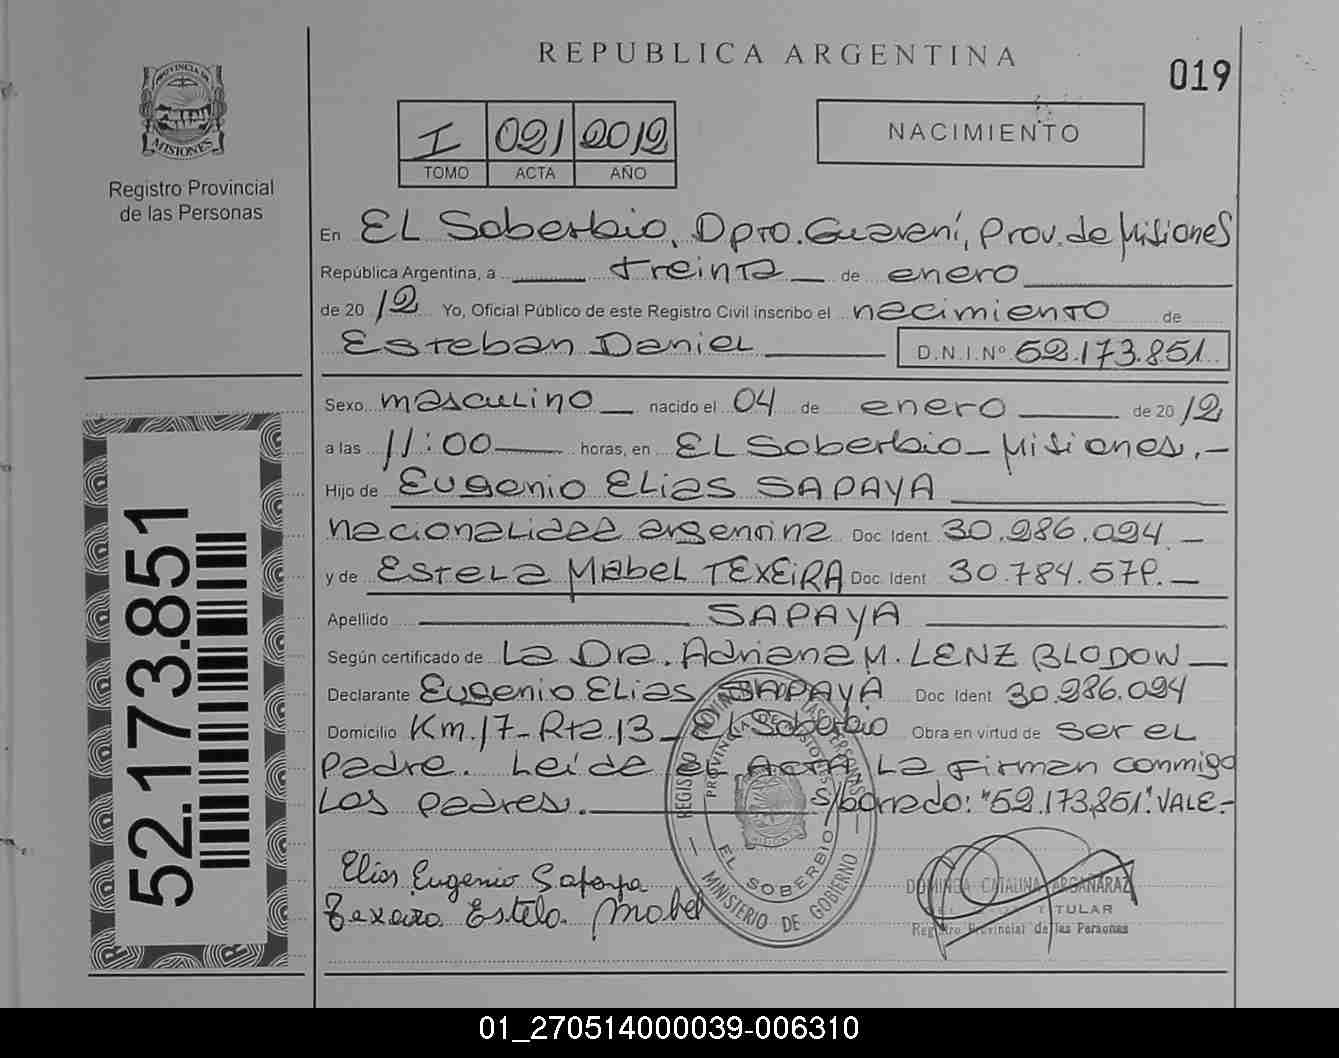 REPUBLICA ARGENTINA
019
PROVINCIA DE
MISIONES
Registro Provincial
de las Personas
I 021 2012
TOMO ACTA AÑO
NACIMIENTO
En El Soberbio, Dpto. Guaraní, Prov. de Misiones
República Argentina, a treinta de enero
de 20 12 Yo, Oficial Público de este Registro Civil inscribo el nacimiento de
Esteban Daniel D.N.I.Nº 52.173.851
Sexo masculino nacido el 04 de enero de 20 12
a las 11:00 horas, en El Soberbio - Misiones.-
Hijo de Eugenio Elias SAPAYA
nacionalidad argentina Doc. Ident. 30.986.094.-
y de Estela Mabel TEXEIRA Doc. Ident 30.784.571.-
Apellido SAPAYA
Según certificado de La Dra. Adriana M. LENZ BLODOW
Declarante Eugenio Elias SAPAYA Doc Ident 30.986.094
Domicilio Km.17- Rta.13 - El Soberbio Obra en virtud de ser el
padre. Leída el ACTA La firman conmigo
Los padres. S/borrado: "52.173,851". VALE-
REGISTRO PROVINCIAL DE LAS PERSONAS
PROVINCIA DE MISIONES
EL SOBERBIO
MINISTERIO DE GOBIERNO
Elias Eugenio Sapaya
Texeira Estela Mabel
DOMINGA CATALINA ARGAÑARAZ
TITULAR
Registro Provincial de las Personas
52.173.851
01_270514000039-006310